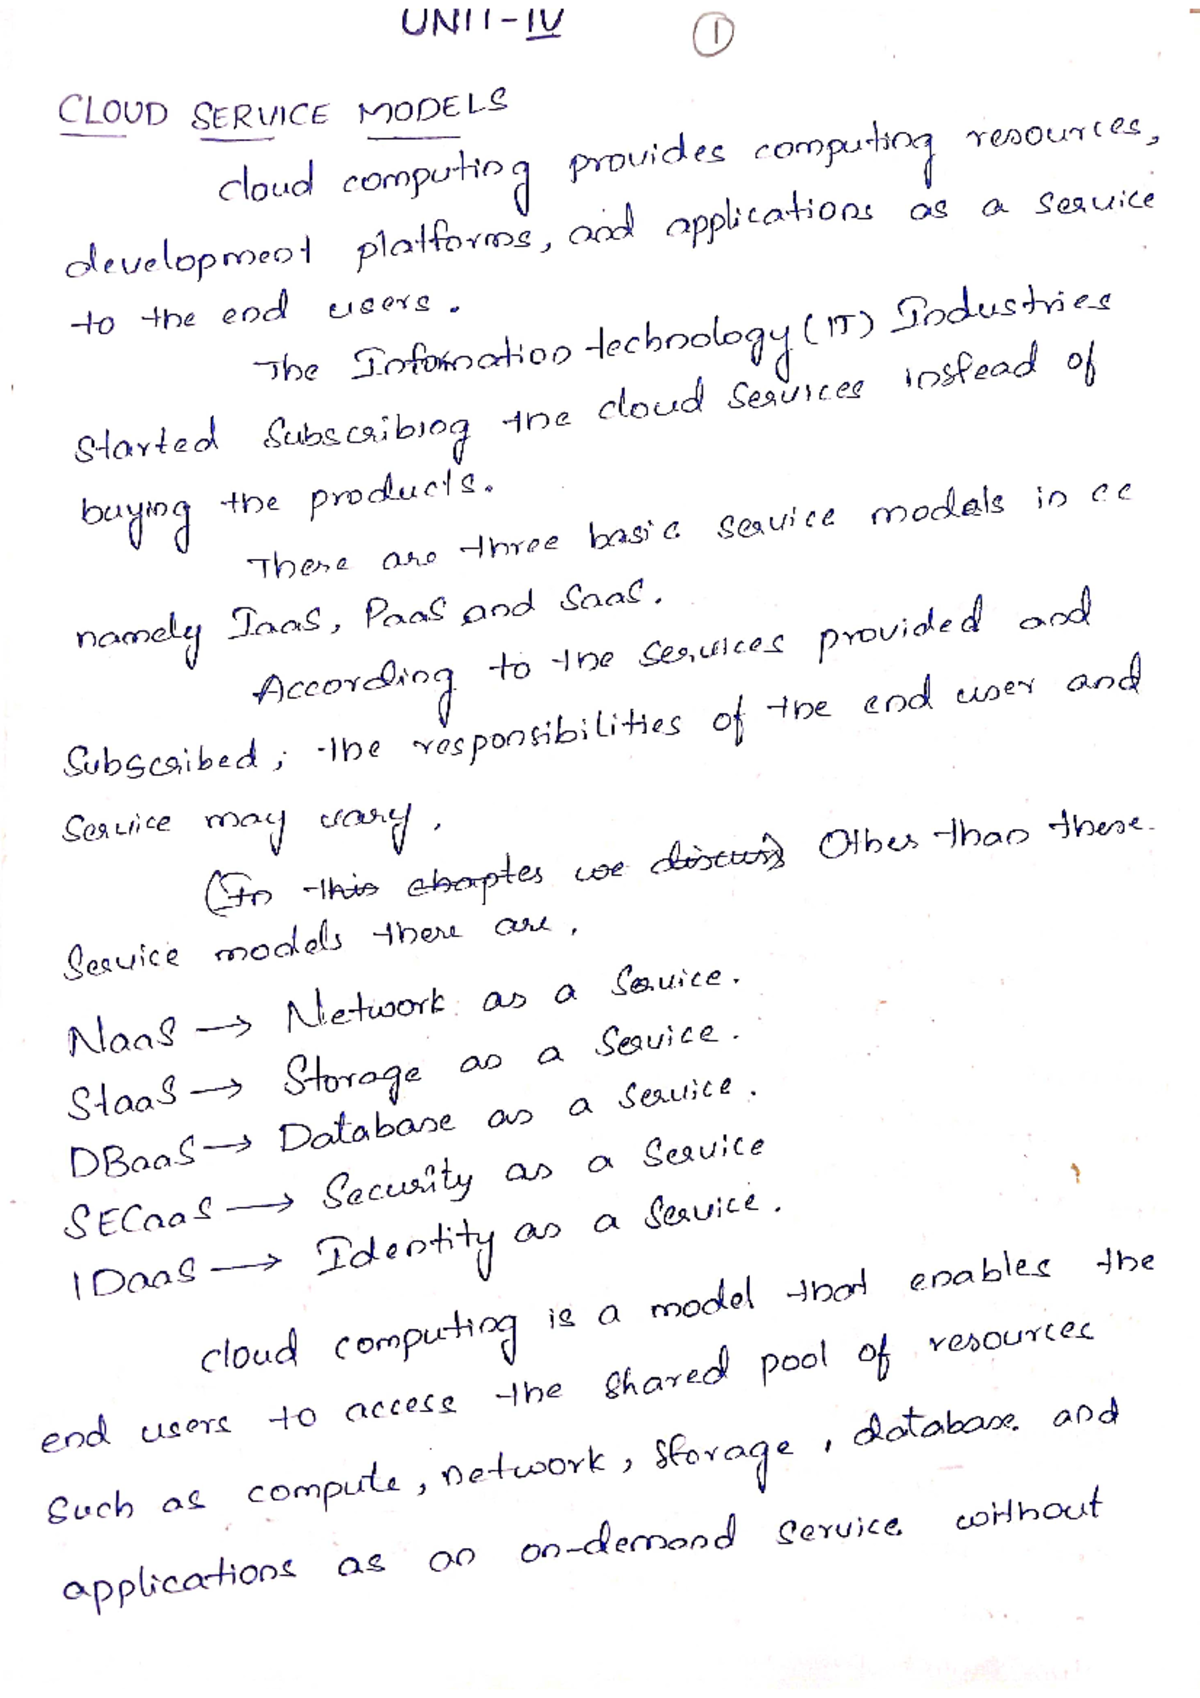 UNIT-IV
1
CLOUD SERVICE MODELS
cloud computing provides computing resources,
development platforms, and applications as a service
to the end users.
The Information technology (IT) Industries
Started Subscribing the cloud Services instead of
buying the products.
There are three basic service models in cc
namely IaaS, PaaS and SaaS.
According to the services provided and
Subscribed; the responsibilities of the end user and
Service may vary.
(In this chapter we discuss) Other than these
Service models there are,
NaaS → Network as a Service.
StaaS → Storage as a Service.
DBaaS → Database as a Service.
SECaaS → Security as a Service
IDaaS → Identity as a Service.
cloud computing is a model that enables the
end users to access the shared pool of resources
such as compute, network, storage, database and
applications as an on-demand service without